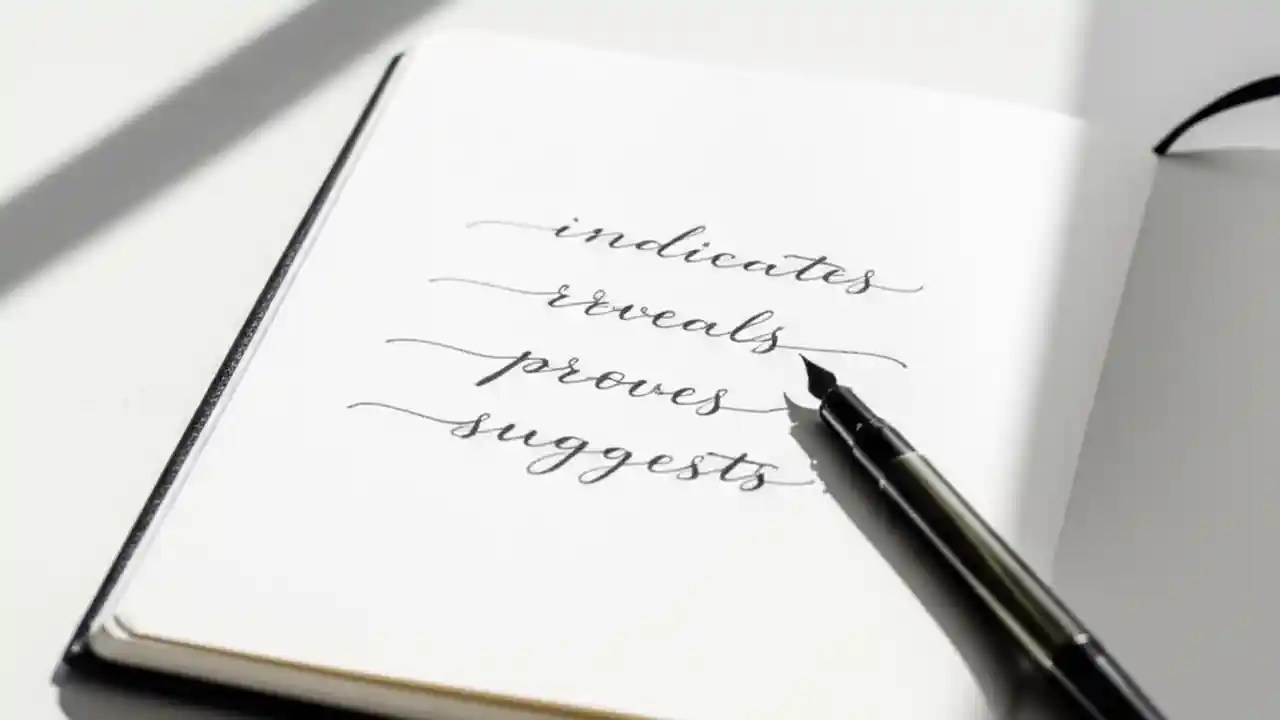 indicates
rrveals
proves
suggests